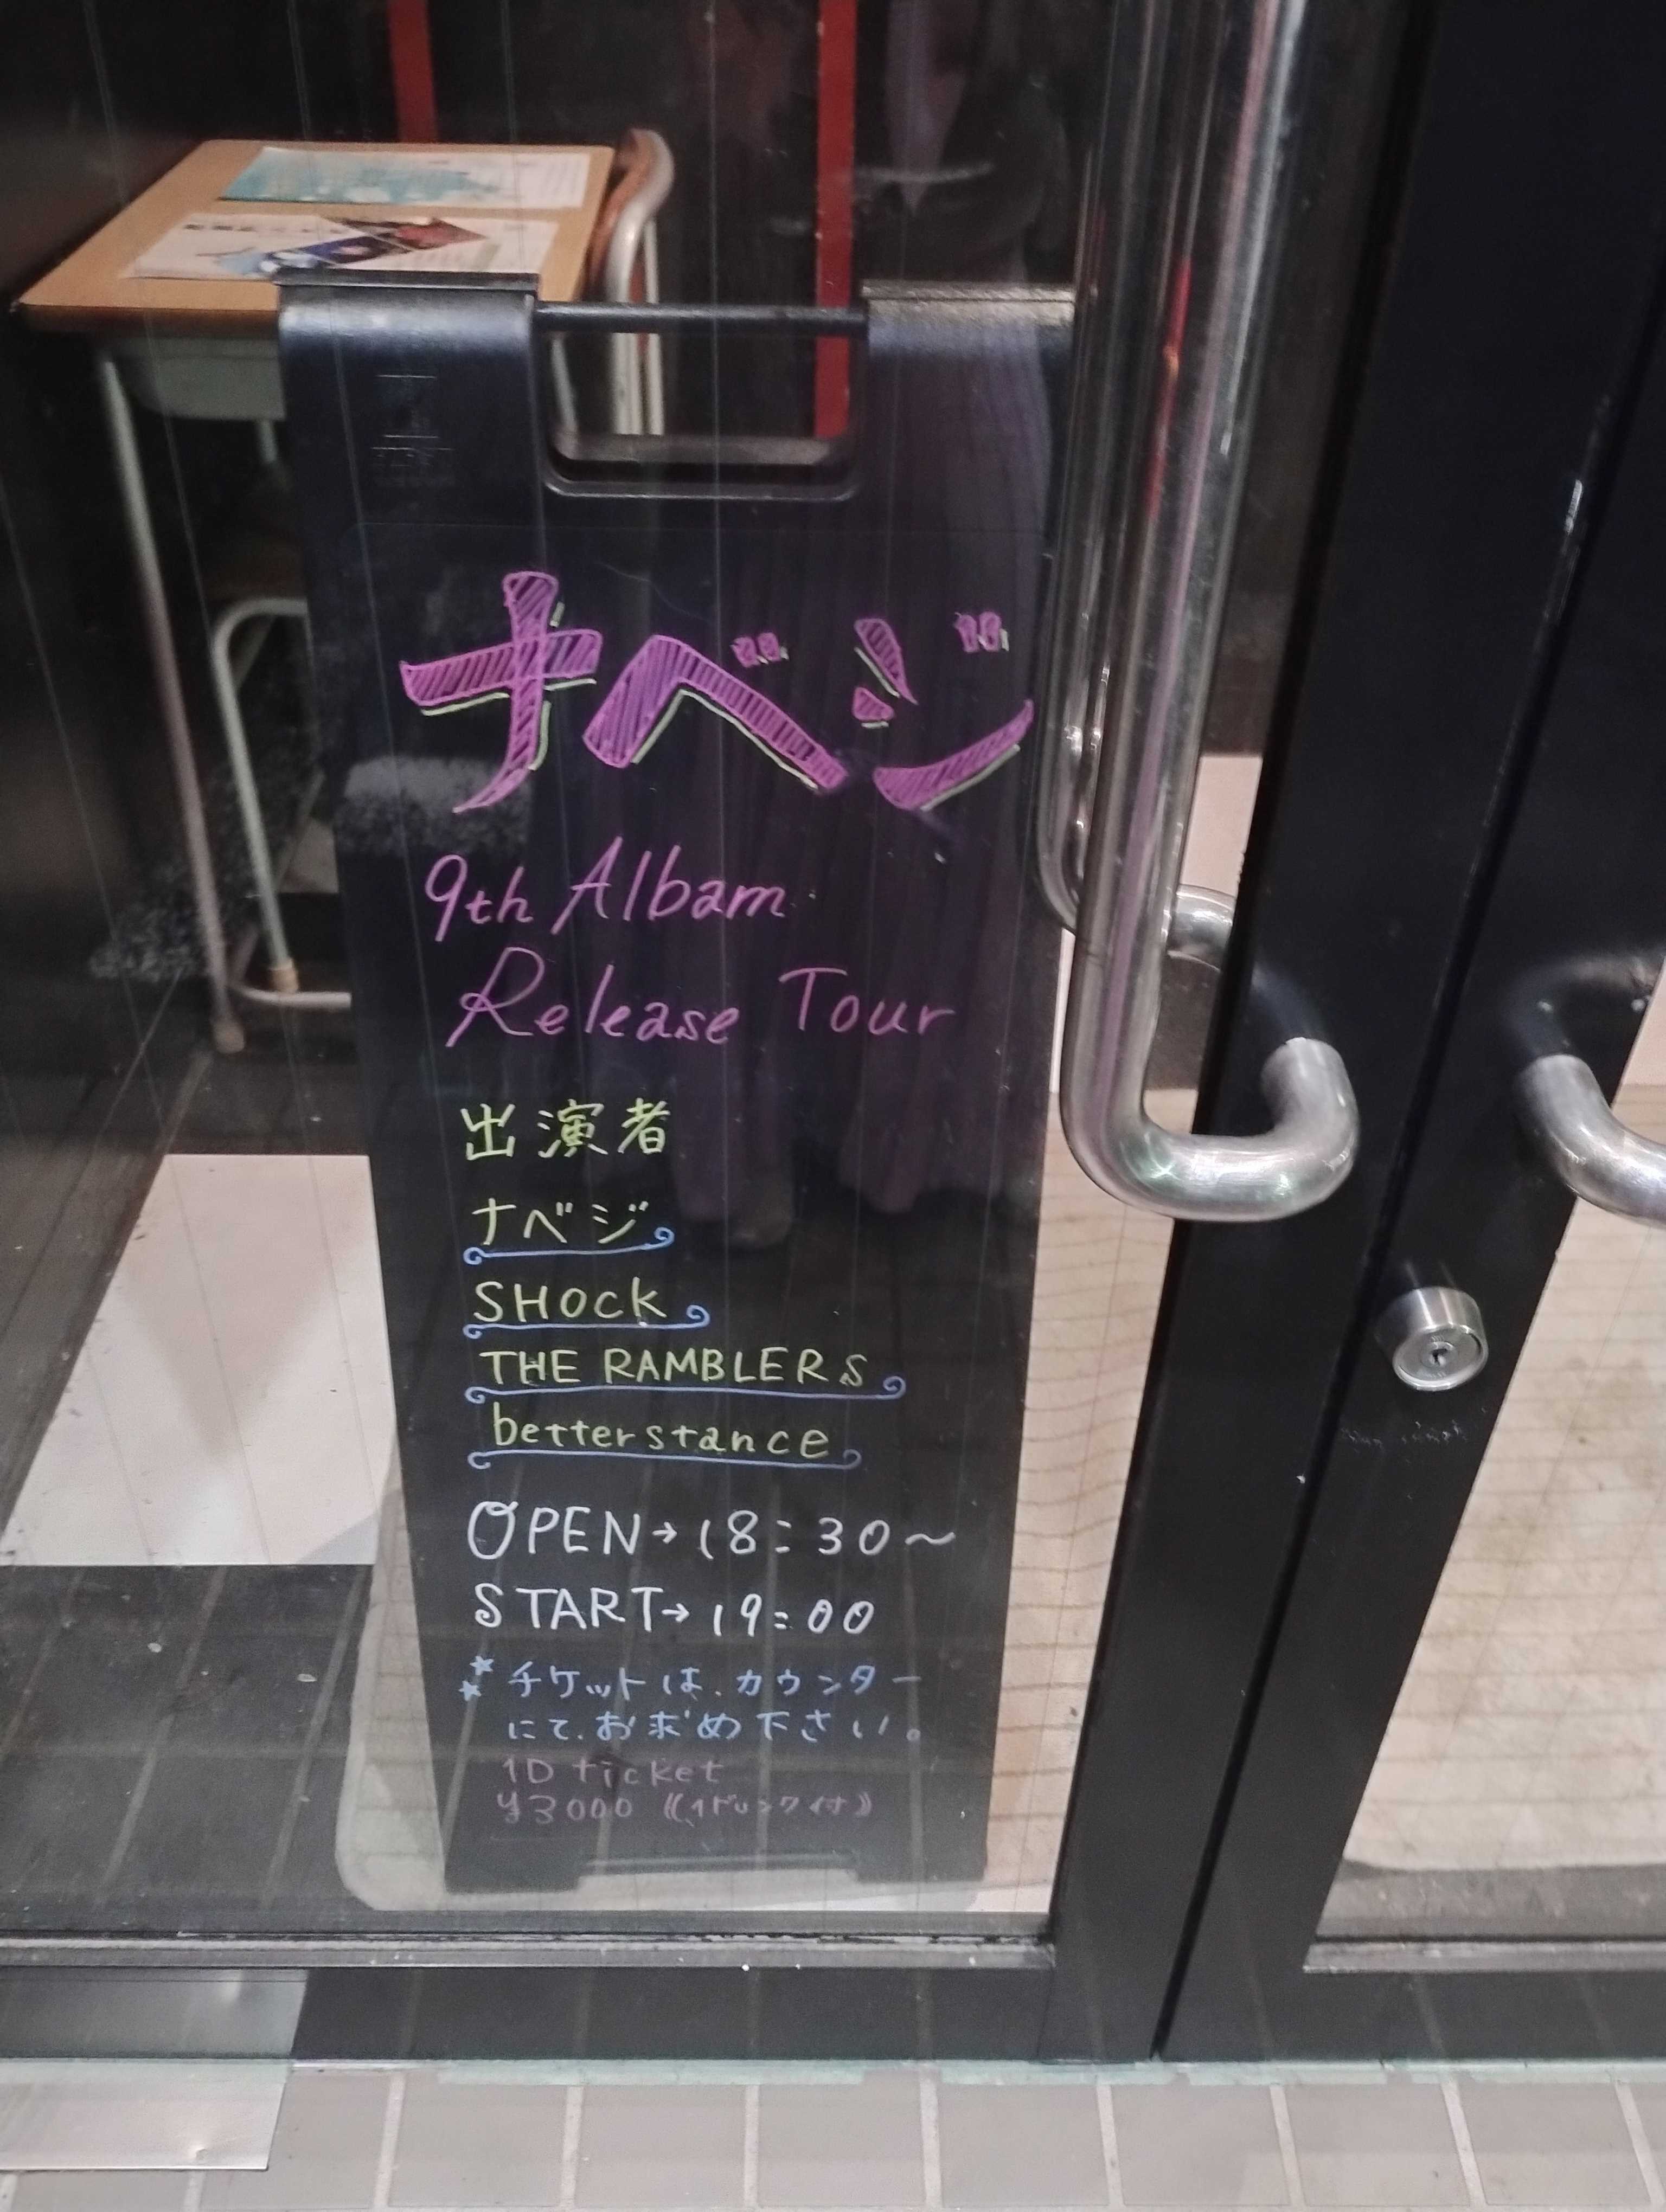 ナベジ
9th Albam
Release Tour
出演者
ナベジ
SHOCK
THE RAMBLERS
better stance
OPEN→18:30～
START→19:00
チケットは、カウンター
にて、お求め下さい。
1D ticket
¥3000 《1ドリンク付》